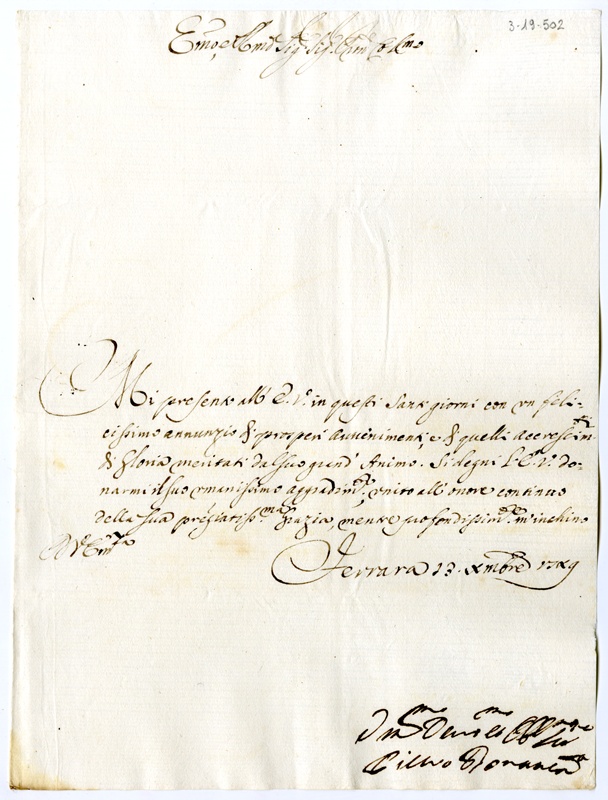 3-19-502
Emo, e Rmo Sig.r Sig.r Pron Colmo
Mi presento all' E. V. in questi Santi giorni con un feli-
cissimo annunzio di prosperi Avvenimenti, e di quelli Accrescim.ti
di Gloria meritati dal suo grand' Animo. Si degni l'Em.a V. do-
narmi il suo umanissimo aggradim.to, unito all' onore continuo
della sua pregiatiss.ma Grazia, mentre profondissim.te m'inchino
A V. Em.za
Ferrara 23. Xmbre
Um.mo Dev.mo ed Obb.mo
Pietro